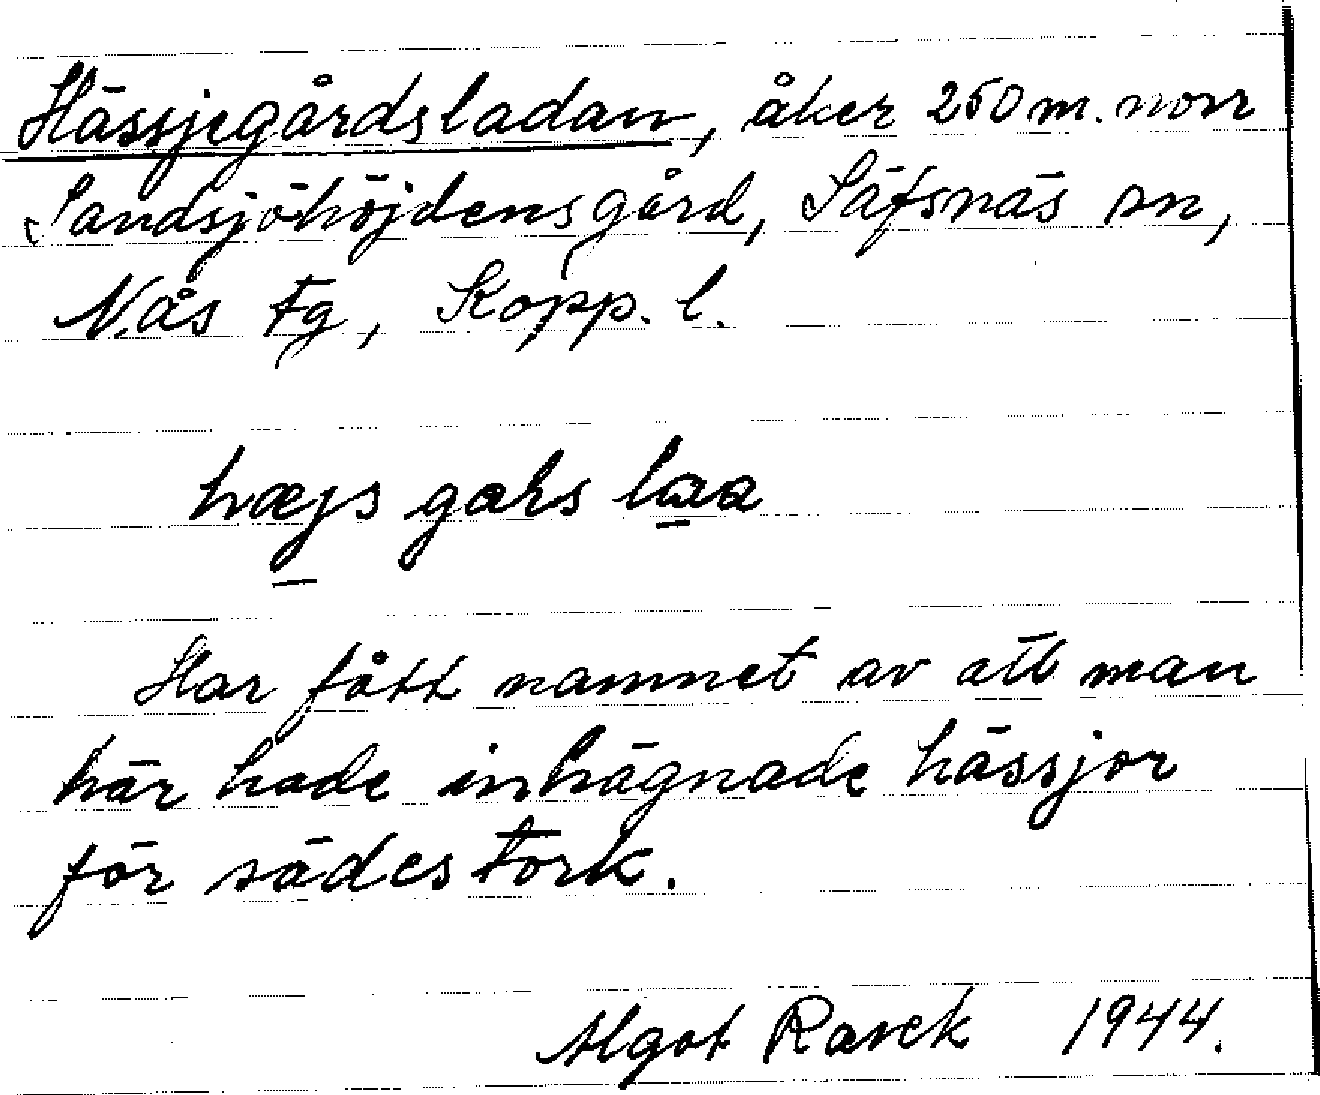 Hässjegårdsladan, åker 250 m. norr
Sandsjöhöjdens gård, Säfsnäs sn,
Nås tg, Kopp. l.
hæjs gaks laa
Har fått namnet av att man
här hade inhägnade hässjor
för sädestork.
Algot 1944.